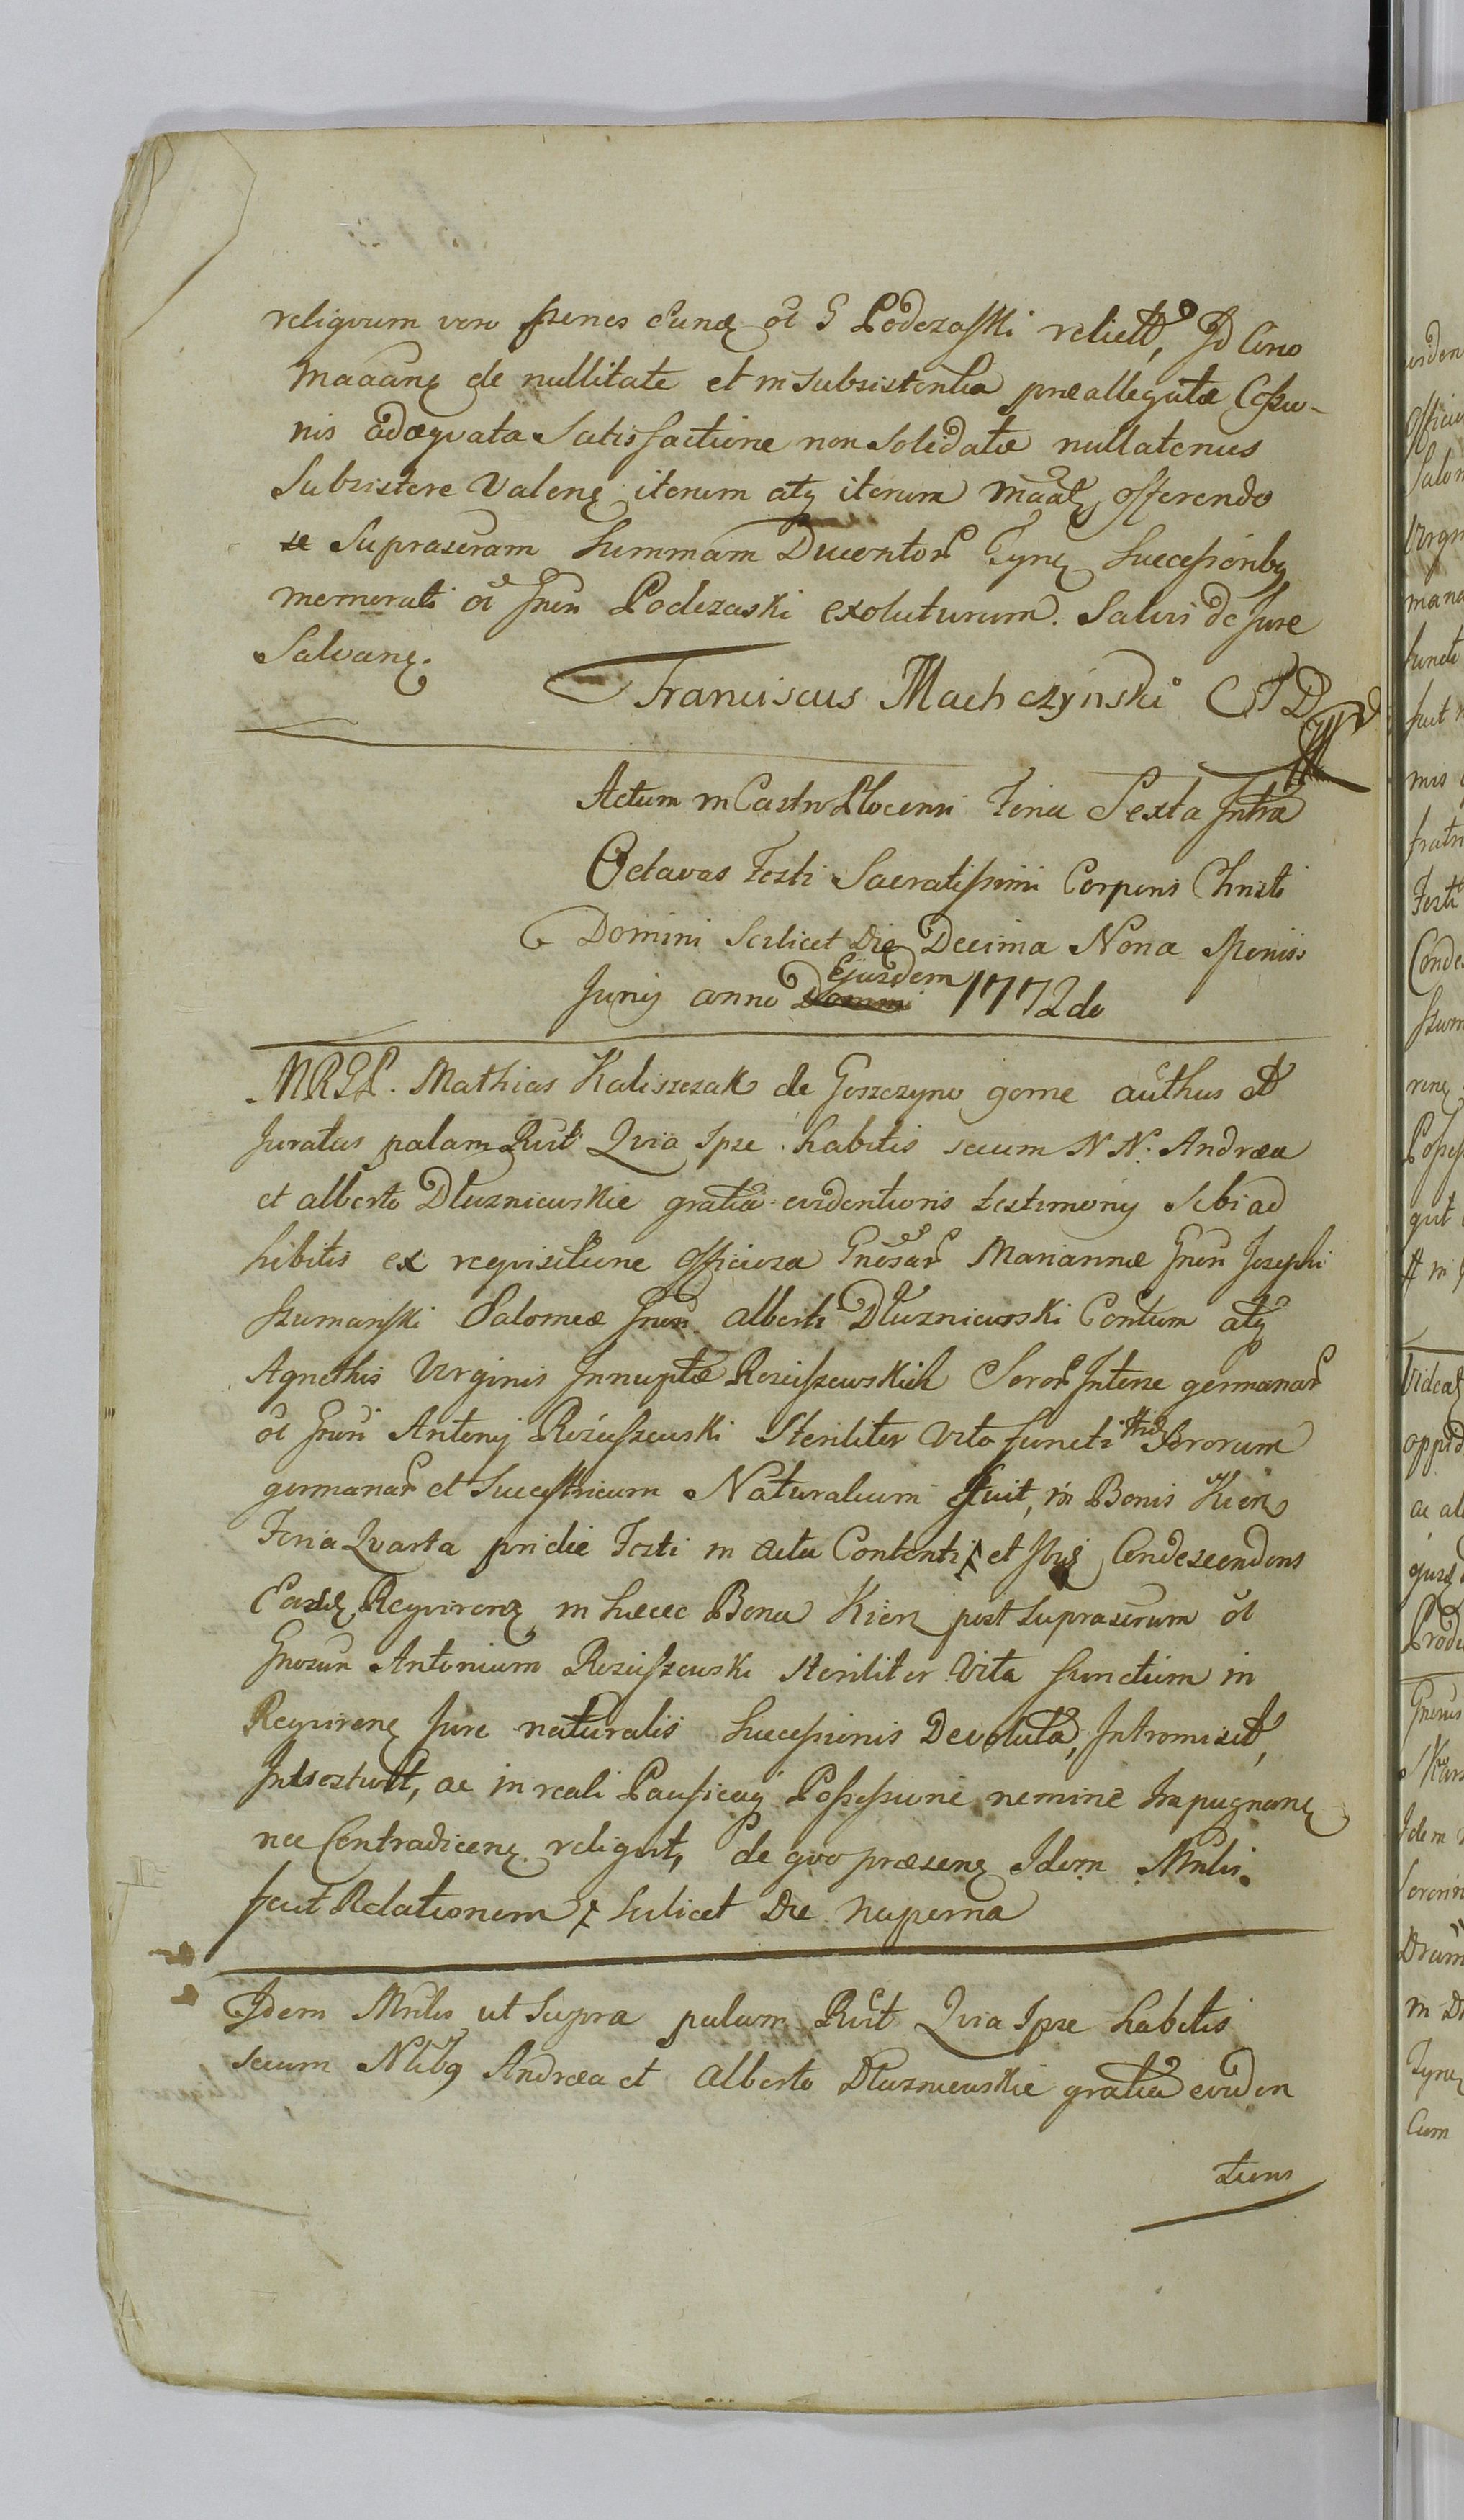 reliqvum vero penes eund ol G Podczaski relictt, Id Circo
maãane de nullitate et in Subsistentia præallegatæ
nis adæqvata Satisfactione non Solidatæ nullatenus
Subsistere Valene iterum atq iterum offerendo
se Suprascram Summam Ducentor Tyne Succeßoribq
memorati ol Gnen Podczaski exoluturum. Salvis de Jure
Salvane.
Franciscus Machczyński CTD
Actum in Castro Plocensi Feria Sexta Intra
Octavas Festi Sacratißimi Corporis Christi
Domini Scilicet Die Decima Nona Mensis
Junij anno Domini Ejusdem 1772do
MRGL. Mathias Kaliszczak de Goszczyno gorne authus et
Juratus palam Rvit Qvia Ipse habitis secum N N. Andrea
et alberto Dłuzniewskie gratia evidentioris testimonij Sibi ad
hibitis ex reqvisitione officiosa Gnosar Mariannæ Gnen Josephi
Szumanski Salomeæ Gnen Alberti Dłuzniewski Contum atq
Agnethis Virginis Innuptæ Rosciszewskich Soror Interse germanar
ol Gnen Antonij Rościszewski Steriliter Vita functi Sororum
germanar et Succeßtricum Naturalium fuit, in Bonis Kierz
Feria Qvarta pridie Festi in actu Contenti et ibiq Condescendens
Easde Reqvirene in hæcec Bona Kierz post Suprascrum ol
Gnosum Antonium Rosciszewski Steriliter Vita functum in
Reqvirene Jure naturalis Succeßionis Devoluta, Intromisit,
Investivit, ac in reali Pacificaq Poßeßione nemine Impugnane
nec Contradicene reliqvit, de qvo præsene Idem Mnlis.
fecit Relationem Scilicet Die Nuperna
Idem Mnlis ut Supra palam Rvit Qvia Ipse habitis
secum Nlibq Andrea et Alberto Dłuzniewskie gratia eviden
tioris